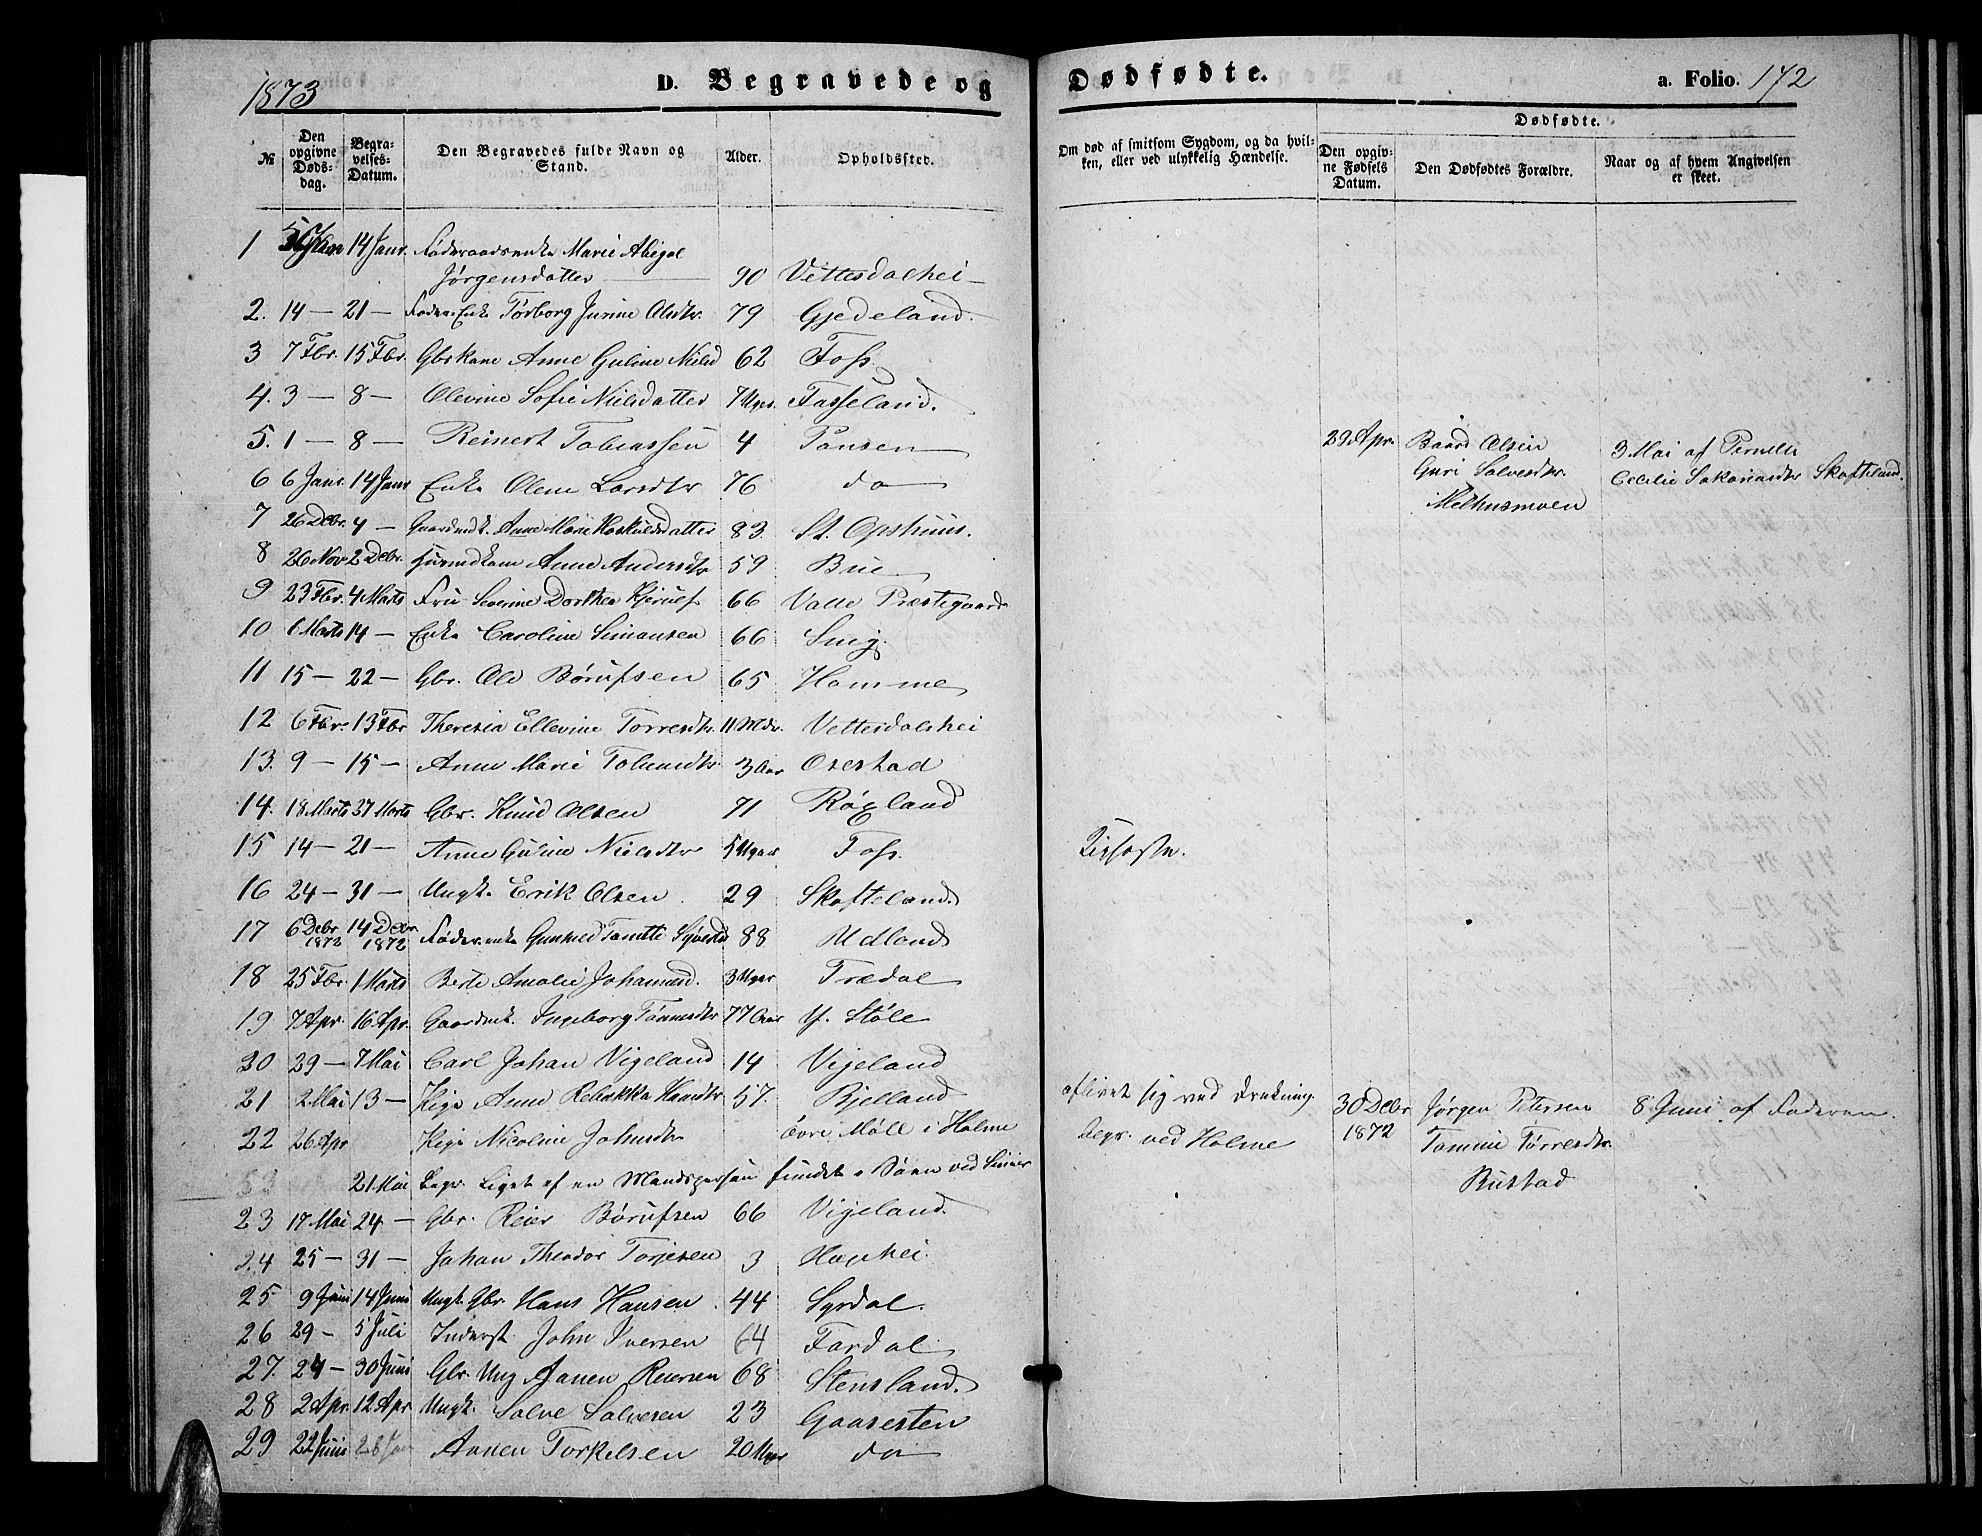 1873
D. Begravede og Dødfødte.
a. Folio. 172
№
Den opgivne Dødsdag.
Begravelses-Datum.
Den Begravedes fulde Navn og Stand.
Alder.
Opholdssted.
Om død af smitsom Sygdom, og da hvilken, eller ved ulykkelig Hændelse.
Dødfødte.
Den opgivne Fødsels Datum.
Den Dødfødtes Forældre.
Naar og af hvem Angivelsen er skeet.
1 14 Janr. Føderaadsenke Marie Abigal
Jørgensdatter 90 Vettesdalhei
2. 14 — 21 — Enke Torborg Jurine Olsdtr. 79 Gjedeland.
3 7 Fbr. 15 Fbr. Gbrkone Anne Guline Nielsd 62 Foss.
4. 3 — 8 — Olevine Sofie Nielsdatter 7 Uger. Fasseland.
5. 1 — 8 — Reinert Tobiassen 4
6 6 Janr. 14 Janr Enke Olene Larsdtr 76 do
7 26 Debr. 4 — Anne Marie Haskuldsdatter 83. St. Opshuus.
8 26 Nov 2 Debr. Huusmdkone Anne Andersdtr 59 Bue
9 23 Fbr. 4 Marts Fru Severine Dorthea Kjerulf 66 Valle Præstegaard
10 6 Marts 14 — Enke Caroline Simonsen 66 Snig
11 15 — 22 — Gbr. Ole Børufsen 65 Homme
12 6 Fbr. 13 Fbr Theresia Ellevine Torresdtr. 11 Mdr. Vettesdalshei
13. 9 — 15 — Anne Marie 3 Aar Osestad
14. 18 Marts 27 Marts Gbr. Knud Olsen 71 Røyland
15 14 — 21 — Anne Guline Nielsdtr 5 Uger Foss.
16 24 — 31 — Ungk. Erik Olsen 29 Skofteland.
17 6 Debr 1872 14 Debr 1872 Føder.enke 88 Udland
18 25 Fbr. 1 Marts Berte Amalie Johannesd. 3 Uger Trædal
19 7 Apr. 16 Apr. Ingeborg Tønnesdtr 77 Aar Y. Støle
20 29 — 7 Mai Carl Johan Vigeland 14 Vigeland
21 2 Mai 13 — Pige Anne Rebekka 57. Bjelland aflivet sig ved Drukning.
22 26 Apr Pige Nicoline Johnsdtr øvre Møll i Holme begr. ved Holme
21 Mai begr. Liget af en Mandsperson fundet i Søen ved
23 17 Mai 24 — Gbr. Reier Børufsen 66 Vigeland.
24 25 — 31 — Johan Theodor Torjesen 3
25 9 Juni 14 Juni Ungk. Gbr. Hans Hansen 44 Syrdal.
26 29 — 5 Juli Inderst. John Iversen 64 Fardal
27. 24 — 30 Juni Gbr. Ung Aanen Reiersen 68 Stensland.
28 2 Apr. 12 Apr Ungk. Salve Salvesen 23 Gaaresten
29 22 Juni 28 Aanen Torkelsen 20 Uger do
29 Apr. Baard Olsen
Guri Salvesdtr.
Melhusmoen
3 Mai af Pernelle
Cecilie Sakariasdtr Skofteland.
30 Debr 1872 Jørgen Petersen
Tomine Tørresdtr.
Bustad
8 Juni af Faderen.